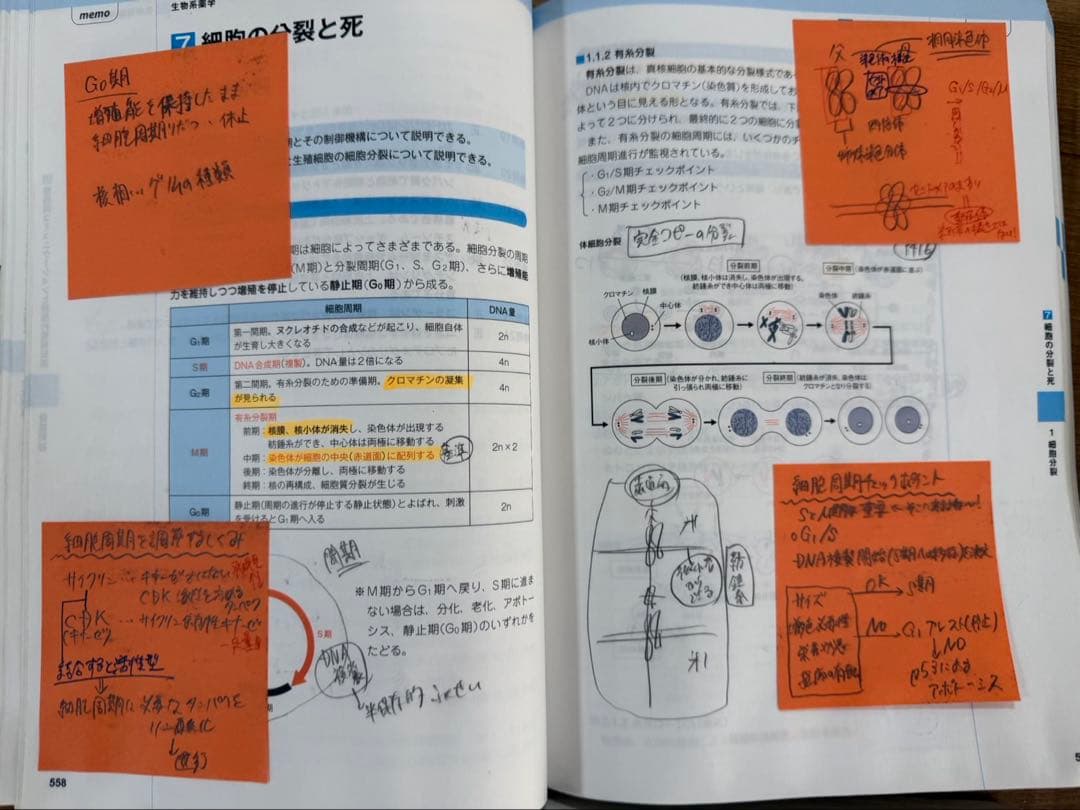 memo
生物系薬学
7 細胞の分裂と死
G0期
増殖能を保持したまま
細胞周期 休止
核相… ゲノムの種類
期とその制御機構について説明できる。
生殖細胞の細胞分裂について説明できる。
期は細胞によってさまざまである。細胞分裂の周期
(M期)と分裂周期(G1、S、G2期)、さらに増殖能
力を維持しつつ増殖を停止している静止期(G0期)から成る。
細胞周期 DNA量
G1期 第一間期。ヌクレオチドの合成などが起こり、細胞自体が生育し大きくなる 2n
S期 DNA合成期(複製)。DNA量は2倍になる 4n
G2期 第二間期。有糸分裂のための準備期。クロマチンの凝集が見られる 4n
M期 有糸分裂期
前期:核膜、核小体が消失し、染色体が出現する
紡錘糸ができ、中心体は両極に移動する
中期:染色体が細胞の中央(赤道面)に配列する 基準
後期:染色体が分離し、両極に移動する
終期:核の再構成、細胞質分裂が生じる
2n×2
G0期 静止期(周期の進行が停止する静止状態)とよばれ、刺激を受けるとG1期へ入る 2n
細胞周期を調節するしくみ
サイクリン…
CDK 活性を
CDK … サイクリン依存性キナーゼ
(キナーゼ)
結合すると活性型
細胞周期に必要なタンパクを
リン酸化
周期
S期
DNA複製
半保存的
※M期からG1期へ戻り、S期に進ま
ない場合は、分化、老化、アポトー
シス、静止期(G0期)のいずれかを
たどる。
558
1.1.2 有糸分裂
有糸分裂は、真核細胞の基本的な分裂様式であ
DNAは核内でクロマチン(染色質)を形成してお
体という目に見える形となる。有糸分裂では、下
よって2つに分けられ、最終的に2つの細胞に分
また、有糸分裂の細胞周期には、いくつかのチ
細胞周期進行が監視されている。
・G1/S期チェックポイント
・G2/M期チェックポイント
・M期チェックポイント
父
相同染色体
G1/S/G2/M
体細胞分裂
完全コピーの分裂
分裂前期
(核膜、核小体は消失し、染色体が出現する。
紡錘糸ができ中心体は両極に移動)
分裂中期 (染色体が赤道面に並ぶ)
クロマチン
核膜
中心体
核小体
染色体
紡錘糸
分裂後期 (染色体が分かれ、紡錘糸に
引っ張られ両極に移動)
分裂終期 (紡錘糸が消失、染色体は
クロマチンとなり分裂する)
赤道面
紡錘糸
細胞周期チェックポイント
G1/S
DNA複製開始
サイズ
栄養状態
OK → S期
NO → G1アレスト(停止)
NO
p53による
アポトーシス
7 細胞の分裂と死
1 細胞分裂